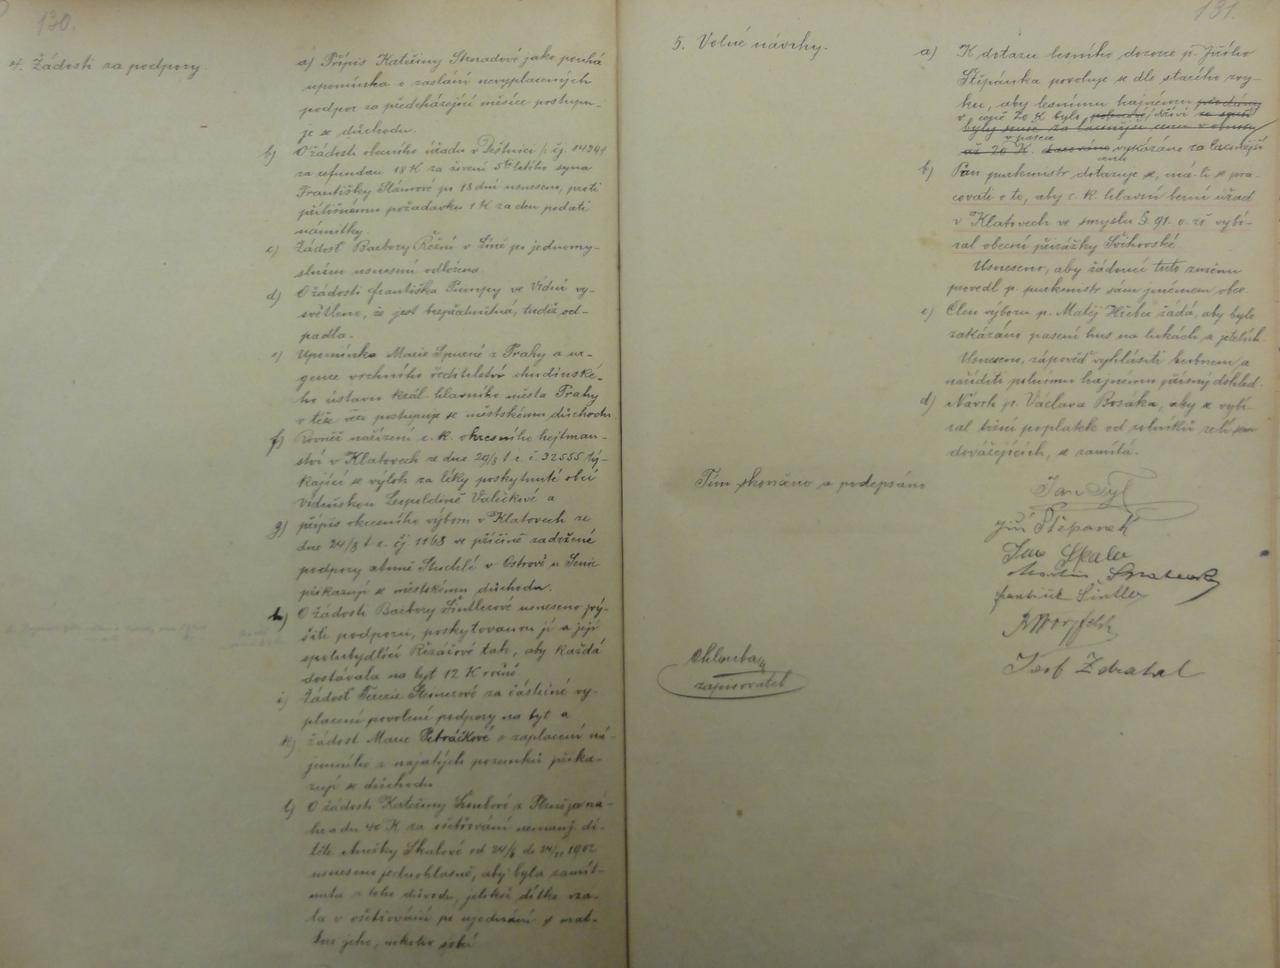 130.
4. Žádosti za podpory.
a) Přípis Kateřiny Strnadové jako pouhá
upomínka o zaslání nevyplacených
podpor za předcházející měsíce postupu-
je se důchodu.
b) O žádosti obecního úřadu v čj. 14244
za refundaci 18 K za živení 5ti letého syna
Františky po 18 dní usneseno, proti
přílišnému požadavku 1 K za den podati
námitky.
c) Žádosť Barbory v po jednomy-
slném usnesení odložena.
d) O žádosti Františka Pumpy ve Vídni vy-
světleno, že jest bezpředmětná, tudíž od-
padla.
e) Upomínka Marie z Prahy a ur-
gence vrchního ředitelství chudinské-
ho ústavu král. hlavního města Prahy
v téže věci postupuje se městskému důchodu.
f) Rovněž nařízení c. k. okresního hejtman-
ství v Klatovech ze dne 29/8 t. r. č. 32555 tý-
kající se výloh za léky poskytnuté obcí
vídeňskou Leopoldině Valečkové a
g) přípis okresního výboru v Klatovech ze
dne 24/8 t. r. čj. 1168 ve příčině zadržené
podpory v Ostrově u
přikazují se městskému důchodu.
h) O žádosti Barbory Šintlerové usneseno zvý-
šiti podporu, poskytovanou jí a její
spolubydlící Řezáčové tak, aby každá
dostávala na byt 12 K ročně.
i) Žádosť Terezie za částečné vy-
placení povolené podpory na byt a
k) žádost Marie Petráčkové o zaplacení ná-
jemného z najatých pozemků přika-
zují se důchodu.
l) O žádosti Kateřiny z Plzně za ná-
hradu 40 K za ošetřování nemanž. dí-
těte Anežky Skalové od 24/ do 24/ 1902
usneseno jednohlasně, aby byla zamít-
nuta z toho důvodu, jelikož dítko vza-
la v ošetřování po ujednání s mat-
kou jeho, nikoliv s obcí
131.
5. Volné návrhy.
a) K dotazu lesního dozorce p. Jiřího
Štěpánka povoluje se dle starého zvy-
ku, aby lesnímu hajnému
v ceně 20 K bylo dříví
byly za lacinější cenu v obnosu
v pasece
až 20 K. vykázáno za lacinější
cenu
b) Pan purkmistr dotazuje se, má-li se pra-
covati o to, aby c. k. hlavní berní úřad
v Klatovech ve smyslu §. 91. o. zř. vybí-
ral obecní přirážky Švihovské.
Usneseno, aby žádosť tuto
provedl p. purkmistr sám jménem obce.
c) Člen výboru p. Matěj žádá, aby bylo
zakázáno pasení hus na lukách a jetelích.
Usneseno, zápověď vyhlásiti bubnem a
naříditi polnímu hajnému přísný dohled.
d) Návrh p. Václava Bosáka, aby se vybí-
ral tržní poplatek od rolníků zelí sem
dovážejících, se zamítá.
Tím skončeno a podepsáno
Jan Tyl
Jiří Štěpanek
Jan Skala
Martin
František Šintler
Josef Zdrahal
zapisovatel